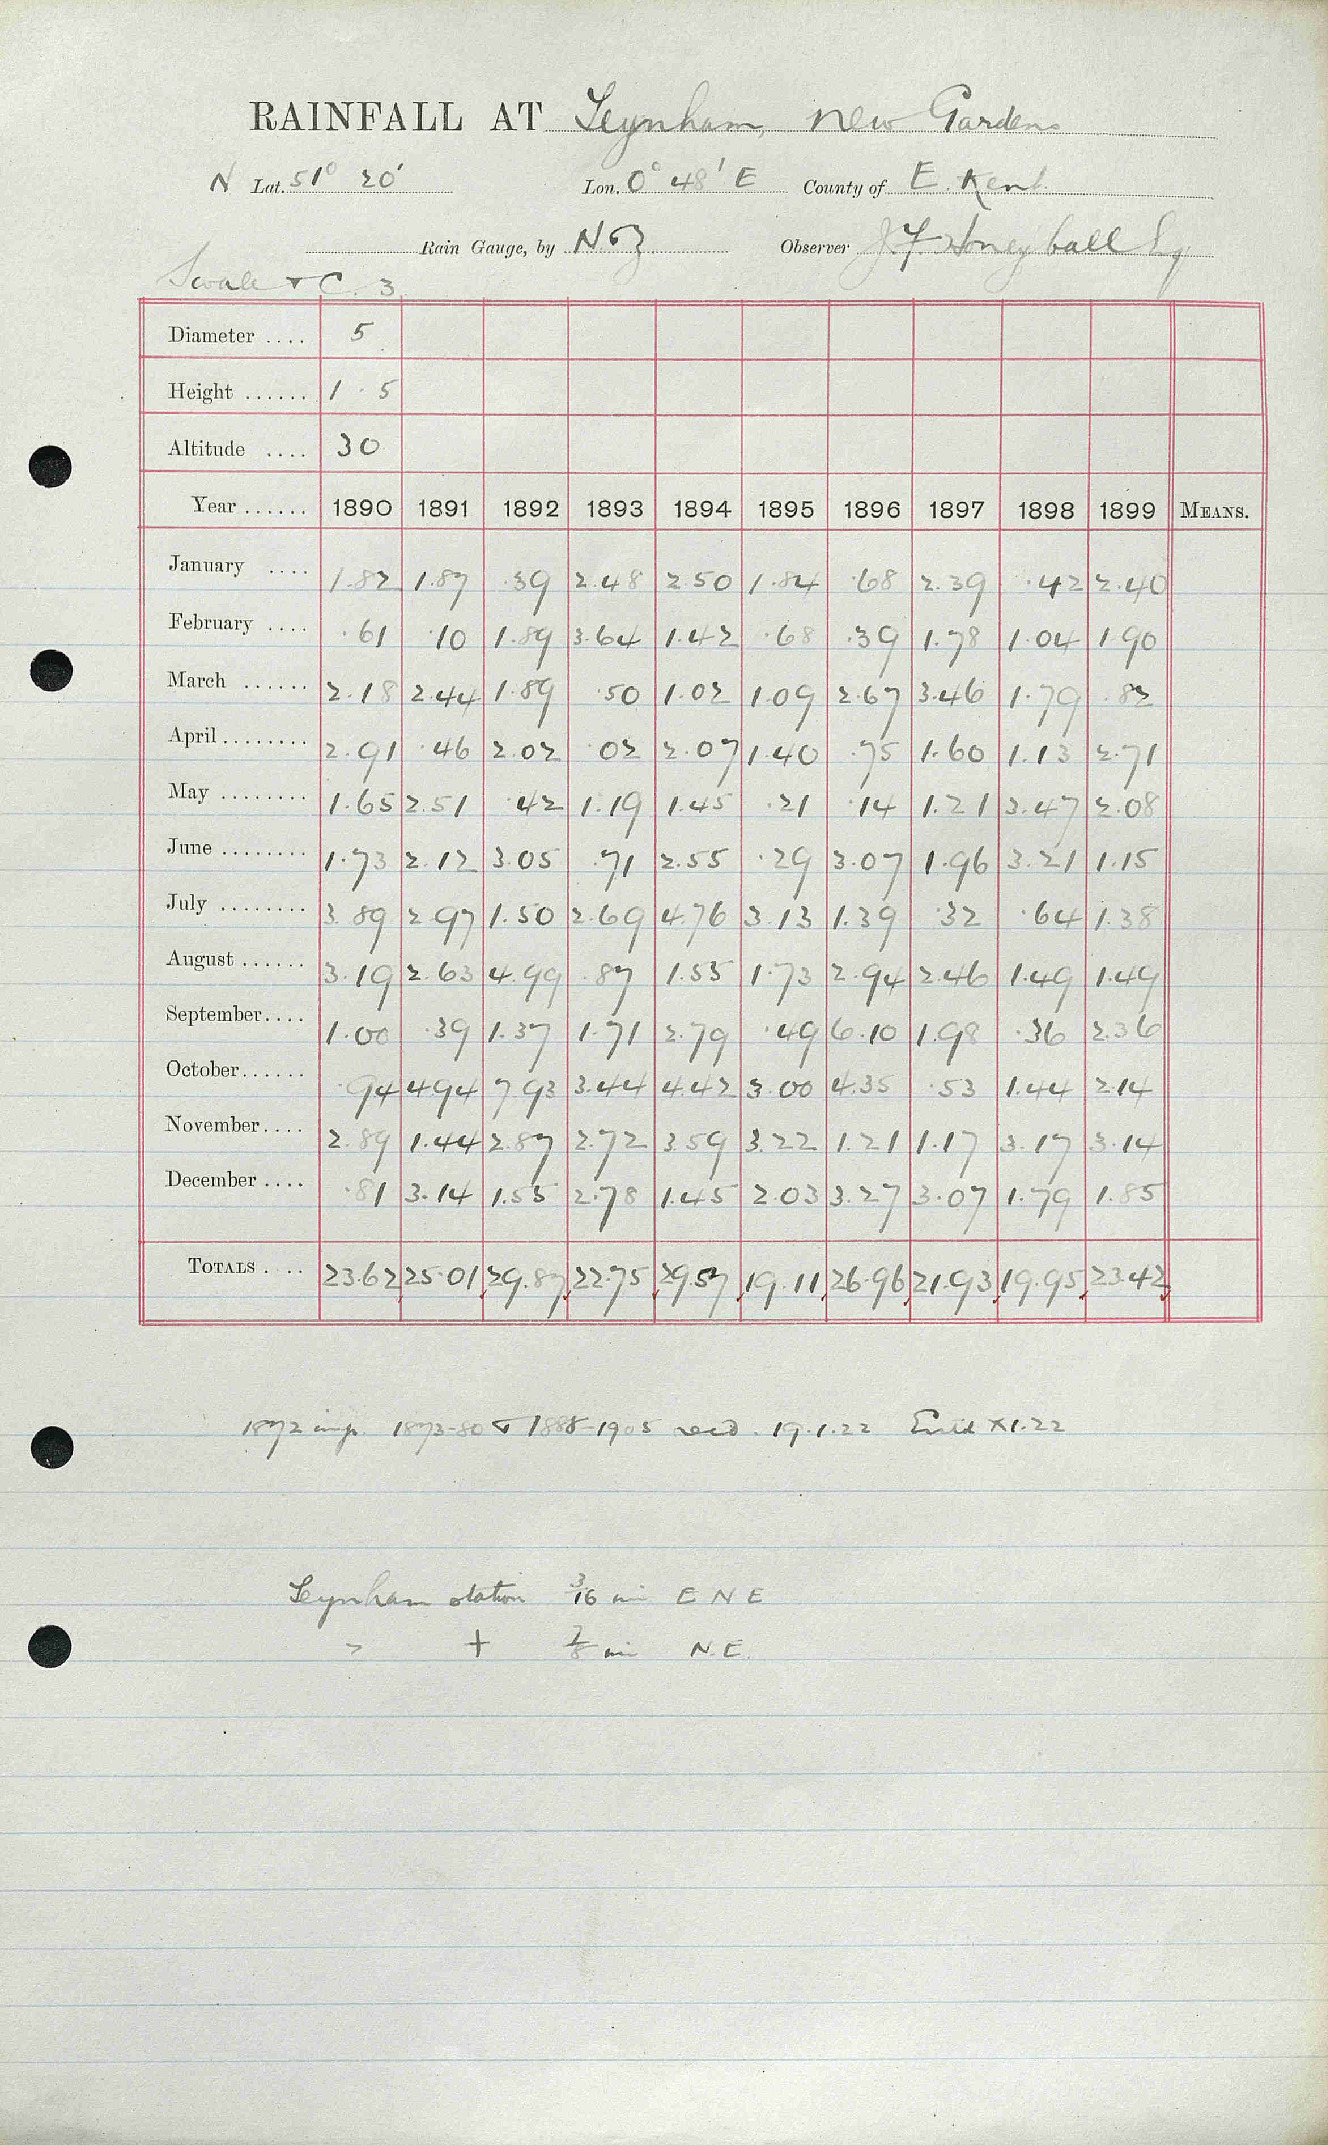 RAINFALL AT Teynham, New Gardens
N Lat. 51° 20' Lon. 0° 48' E County of E. Kent
Rain Gauge, by N & Z Observer J. F. Honeyball Esq
Swale & C. 3.
Diameter .... 5
Height ...... 1 . 5
Altitude .... 30
Year ...... 1890 1891 1892 1893 1894 1895 1896 1897 1898 1899 MEANS.
January .... 1.82 1.87 .39 2.48 2.50 1.84 .68 2.39 .42 2.40
February .... .61 .10 1.89 3.64 1.42 .68 .39 1.78 1.04 1.90
March ...... 2.18 2.44 1.89 .50 1.02 1.09 2.67 3.46 1.79 .82
April ........ 2.91 .46 2.02 .02 2.07 1.40 .75 1.60 1.13 2.71
May ........ 1.65 2.51 .42 1.19 1.45 .21 .14 1.21 3.47 2.08
June ........ 1.73 2.12 3.05 .71 2.55 .29 3.07 1.96 3.21 1.15
July ........ 3.89 2.97 1.50 2.69 4.76 3.13 1.39 .32 .64 1.38
August ...... 3.19 2.63 4.99 .87 1.55 1.73 2.94 2.46 1.49 1.49
September .... 1.00 .39 1.37 1.71 2.79 .49 6.10 1.98 .36 2.36
October ...... .94 4.94 7.93 3.44 4.42 3.00 4.35 .53 1.44 2.14
November .... 2.89 1.44 2.87 2.72 3.59 3.22 1.21 1.17 3.17 3.14
December .... .81 3.14 1.55 2.78 1.45 2.03 3.27 3.07 1.79 1.85
TOTALS .... 23.62 25.01 29.87 22.75 29.57 19.11 26.96 21.93 19.95 23.42
1872 imp. 1873-80 & 1888-1905 recd. 19.1.22 Entd X1.22
Teynham station 3/16 mi E N E
" + 7/8 mi N.E.